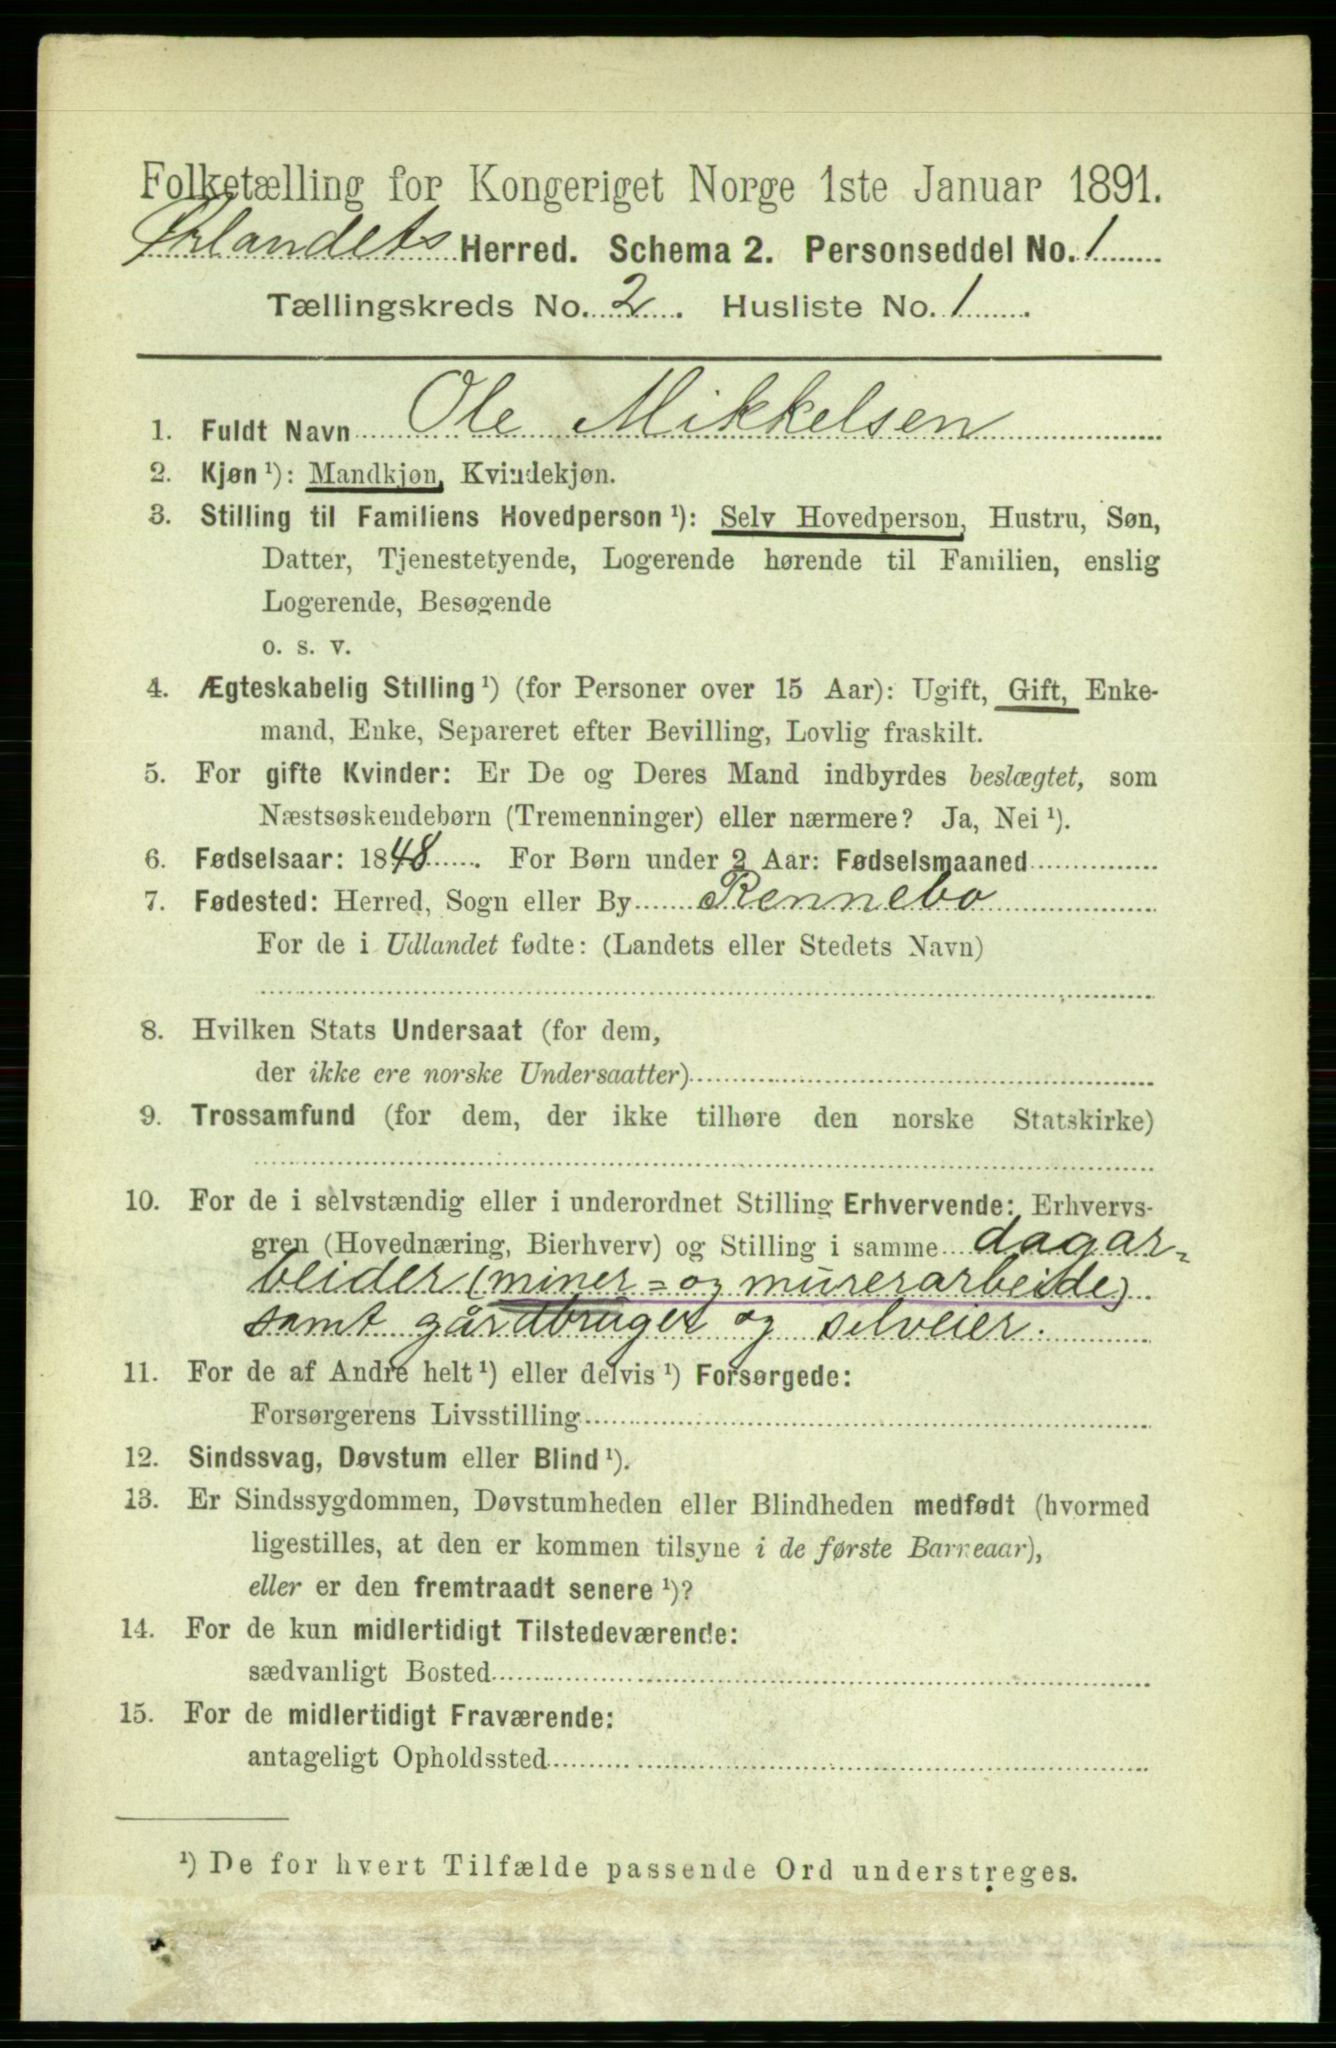 Folketælling for Kongeriget Norge 1ste Januar 1891.
Ørlandets Herred. Schema 2. Personseddel No. 1
Tællingskreds No. 2. Husliste No. 1.
1. Fuldt Navn Ole Mikkelsen
2. Kjøn ¹): Mandkjøn, Kvindekjøn.
3. Stilling til Familiens Hovedperson ¹): Selv Hovedperson, Hustru, Søn,
Datter, Tjenestetyende, Logerende hørende til Familien, enslig
Logerende, Besøgende
o. s. v.
4. Ægteskabelig Stilling ¹) (for Personer over 15 Aar): Ugift, Gift, Enke-
mand, Enke, Separeret efter Bevilling, Lovlig fraskilt.
5. For gifte Kvinder: Er De og Deres Mand indbyrdes beslægtet, som
Næstsøskendebørn (Tremenninger) eller nærmere? Ja, Nei ¹).
6. Fødselsaar: 1848. For Børn under 2 Aar: Fødselsmaaned
7. Fødested: Herred, Sogn eller By Rennebo
For de i Udlandet fødte: (Landets eller Stedets Navn)
8. Hvilken Stats Undersaat (for dem,
der ikke ere norske Undersaatter)
9. Trossamfund (for dem, der ikke tilhøre den norske Statskirke)
10. For de i selvstændig eller i underordnet Stilling Erhvervende: Erhvervs-
gren (Hovednæring, Bierhverv) og Stilling i samme dagar-
beider (miner= og murerarbeide)
samt gårdbruger og selveier.
11. For de af Andre helt ¹) eller delvis ¹) Forsørgede:
Forsørgerens Livsstilling
12. Sindssvag, Døvstum eller Blind ¹).
13. Er Sindssygdommen, Døvstumheden eller Blindheden medfødt (hvormed
ligestilles, at den er kommen tilsyne i de første Barneaar),
eller er den fremtraadt senere ¹)?
14. For de kun midlertidigt Tilstedeværende:
sædvanligt Bosted
15. For de midlertidigt Fraværende:
antageligt Opholdssted
¹) De for hvert Tilfælde passende Ord understreges.